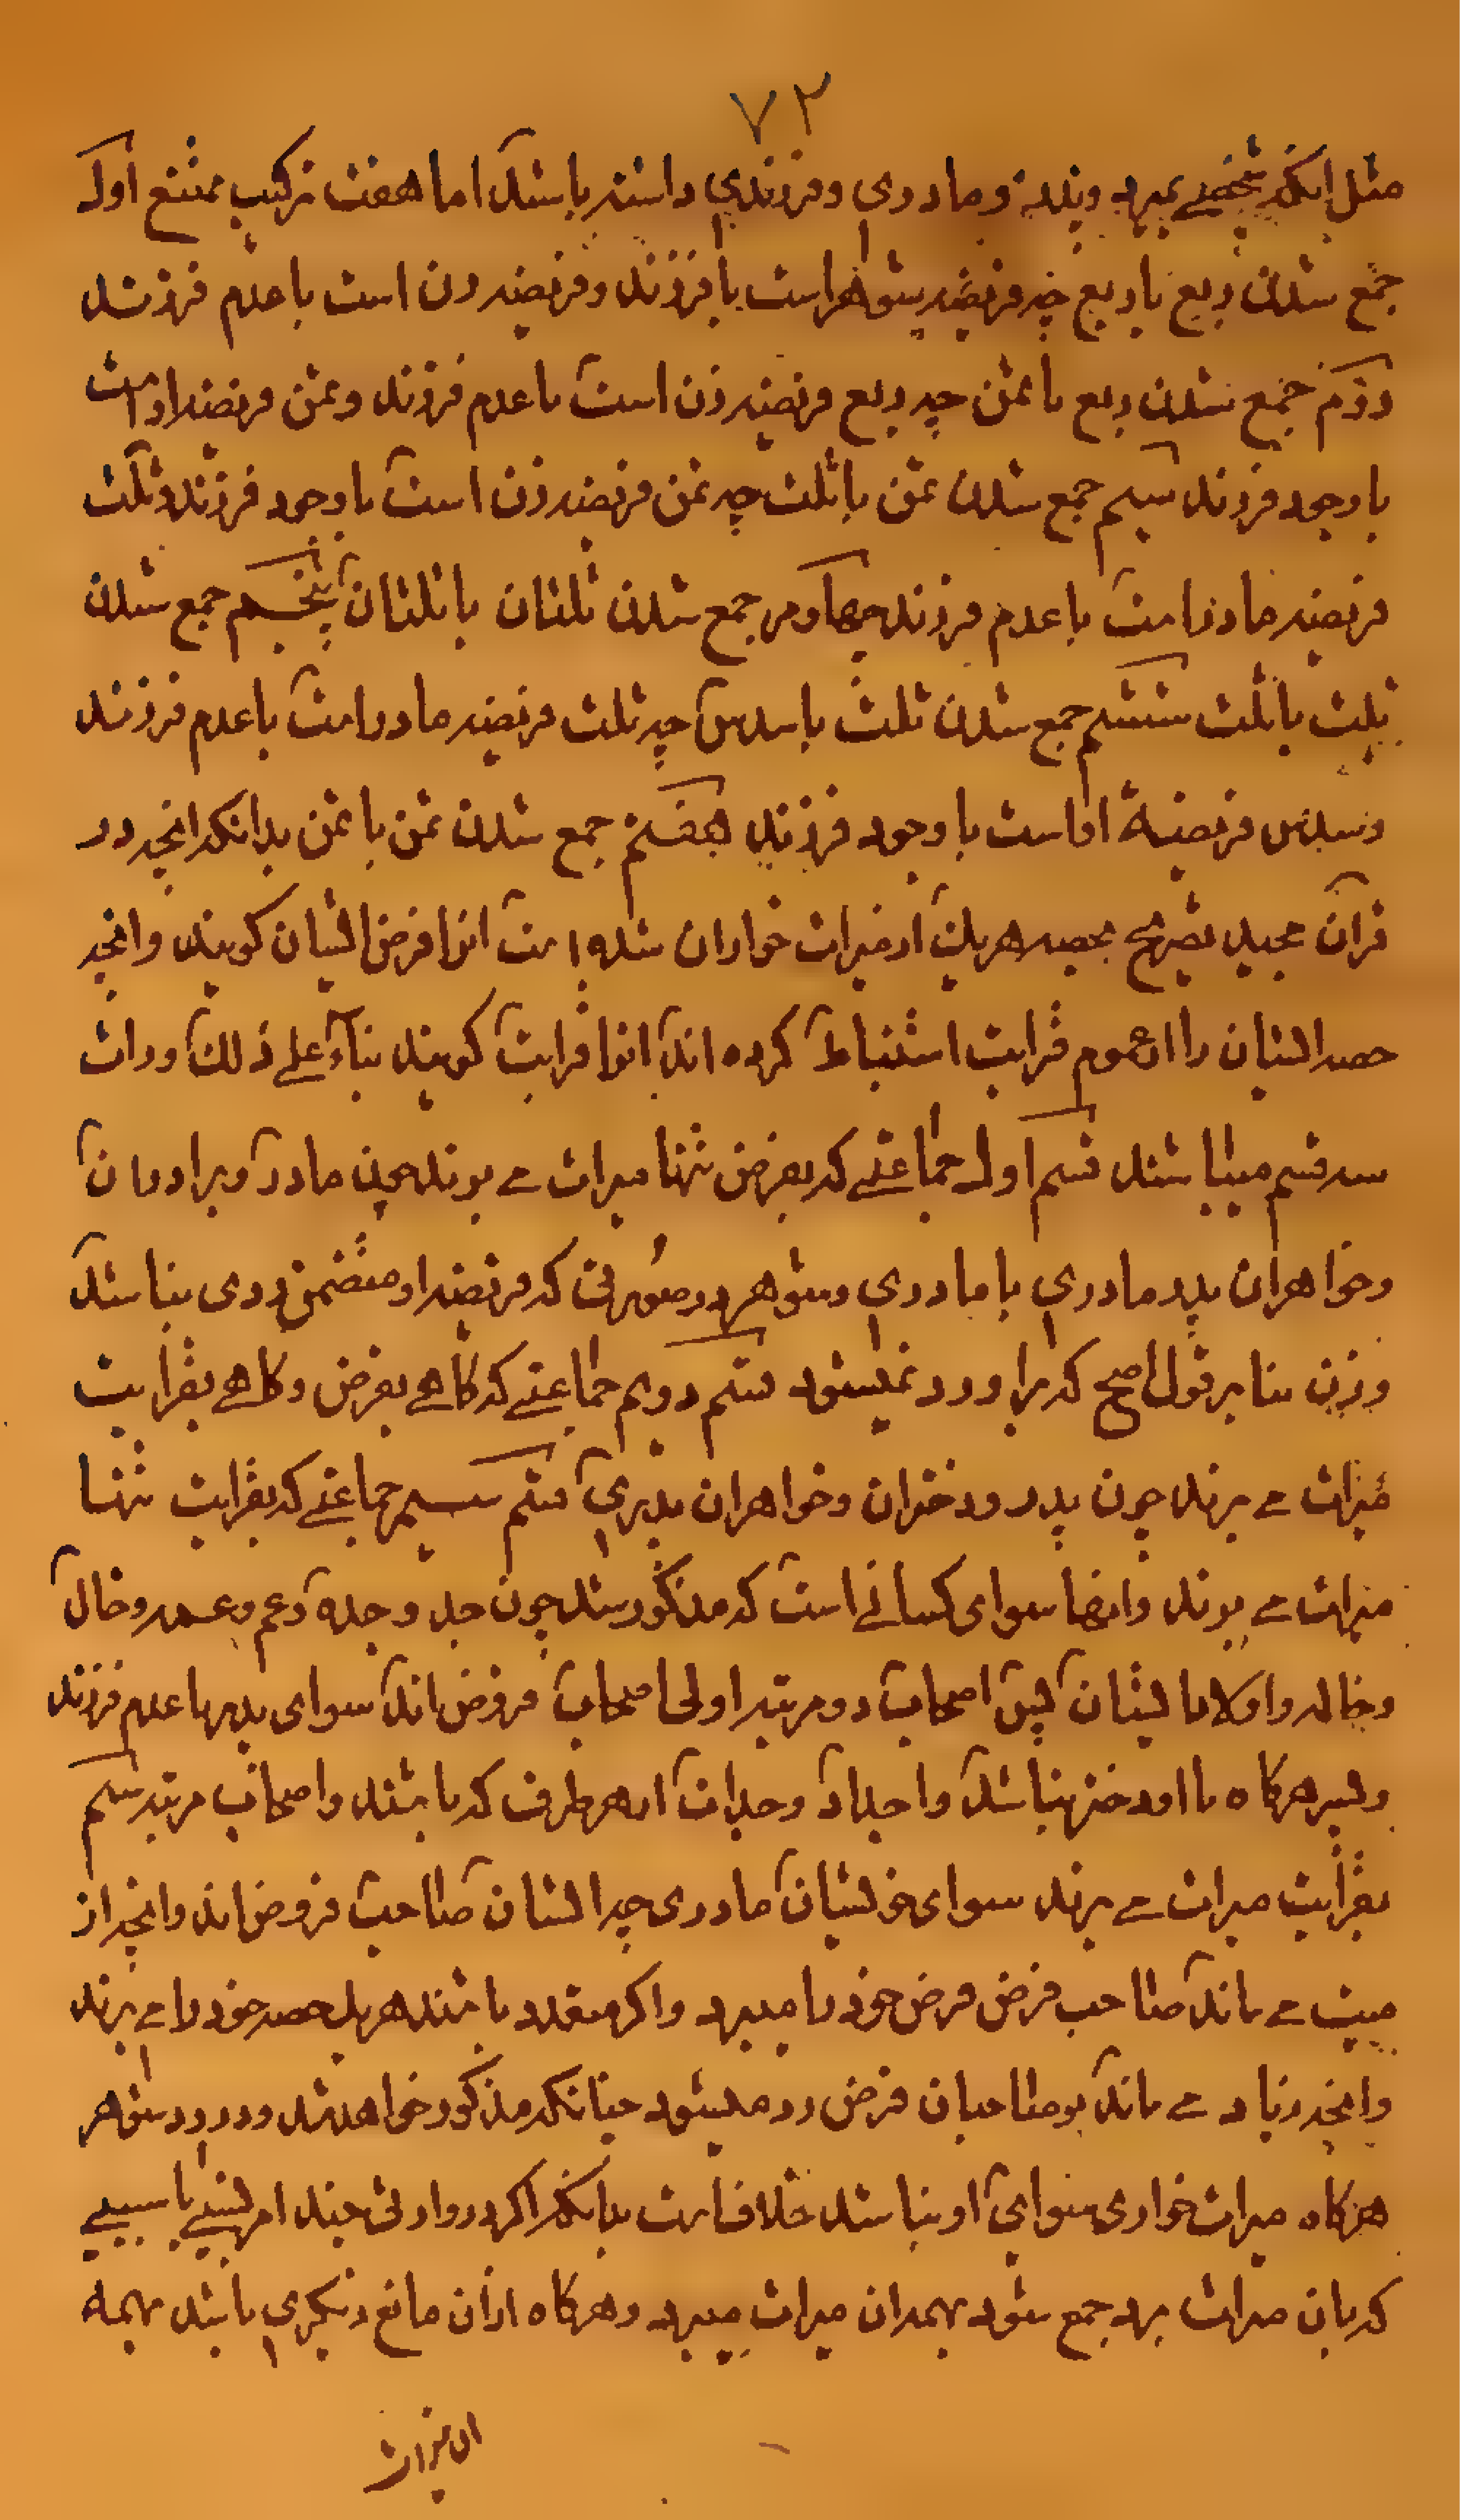 ۷۲
مثل انکه شخصی بمیرد و پدر و مادری و فرزندی داشته باشد اما هفت ترکیب ممتنع اول
جمع شدن ربع با ربع چه فریضه شوهر است با فرزند و فریضه زن است با عدم فرزند
دویم جمع شدن ربع با ثمن چه ربع فریضه زن است با عدم فرزند و ثمن فریضه اوست
با وجود فرزند سیم جمع شدن ثمن با ثلث چه ثمن فریضه زن است با وجود فرزند و ثلث
فریضه مادر است با عدم فرزند چهارم جمع شدن ثلثان با ثلثان پنجم جمع شدن
ثلث با ثلث ششم جمع شدن ثلث با سدس چه ثلث فریضه مادر است با عدم فرزند
و سدس فریضۀ اوست با وجود فرزند هفتم جمع شدن ثمن با ثمن بدانکه انچه در
قرآن مجید تصریح بحصه هریک از میراث خواران شده است انرا فرض ایشان کویند و انچه
حصه ایشان را از عموم قرابت استنباط کرده اند انرا قرابت کویند بناء علی ذلک وراث
سه قسم میباشند قسم اول جماعتی که بفرض تنها میراث می برند چون مادر و برادران
و خواهران پدر مادری یا مادری و شوهر در صورتی که فریضه او متضمن ردی نباشد
و زن بنا بر قول اصح که برو رد نمیشود قسم دویم جماعتی که کاهی بفرض و کاهی بقرابت
میراث می برند چون پدر و دختران و خواهران پدری قسم سیم جماعتی که بقرابت تنها
میراث می برند و اینها سوای کسانی است که مذکور شد چون جد و جده و عم و عمه و خال
و خاله و اولاد ایشان پس اصحاب دو مرتبه اولی اصحاب فروض اند سوای پدر با عدم فرزند
و پسر هرکاه با او دختر نباشد و اجداد و جدات از هر طرف که باشند و اصحاب مرتبه سیم
بقرابت میراث می برند سوای خویشان مادری چه ایشان صاحب فروض اند و انچه از
میت می ماند صاحب فرض فرض خود را میبرد و اکر متعدد باشند هریک حصه خود را می برند
و انچه زیاد می ماند بر صاحبان فرض رد میشود چنانکه مذکور خواهد شد و در رد شوهر
هرکاه میراث خواری سوای او نباشد خلاف است بدانکه اکر در وارثی چند امر نسبی یا سببی
که بان میراث برد جمع شود بهمه ان میراث میبرد و هرکاه از ان مانع دیکری باشد بهمه
ان میراث